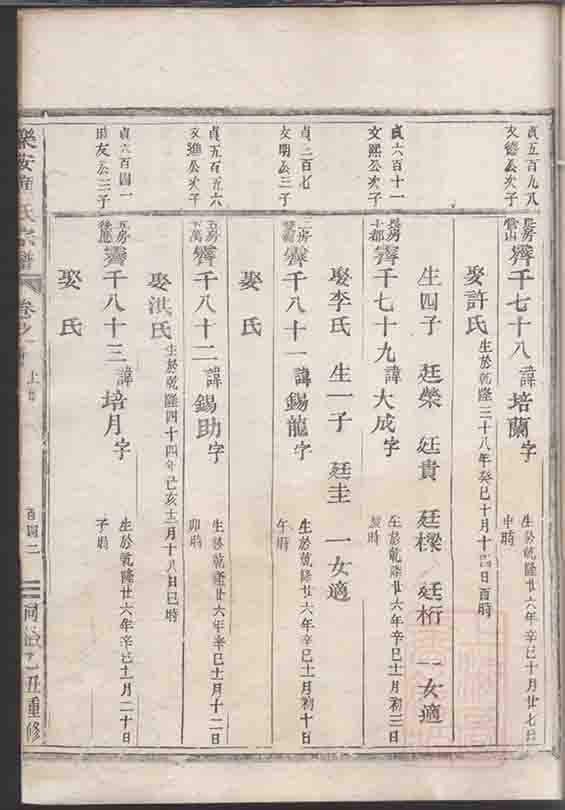 貞五百九八
文德公次子
長房
霽千七十八諱培蘭字
生於乾隆廿六年辛巳十月廿七日
申時
娶許氏
生於乾隆三十八年癸巳十月十四日酉時
生四子 廷榮 廷貴 廷樑 廷桁 一女適
貞六百十一
文熙公次子
長房
十都
霽千七十九諱大成字
生於乾隆廿六年辛巳十一月初三日
娶李氏 生一子 廷圭 一女適
貞二百七
文明公三子
三房
霽千八十一諱錫龍字
生於乾隆廿六年辛巳十一月初十日
午時
娶 氏
貞五百五六
文進公次子
五房
霽千八十二諱錫助字
生於乾隆廿六年辛巳十一月十二日
卯時
娶洪氏
生於乾隆四十四年己亥十二月十八日巳時
貞六百四一
明友公三子
五房
霽千八十三諱培月字
生於乾隆廿六年辛巳十一月二十日
子時
娶 氏
樂安 氏宗譜
卷之
百四二
同治乙丑重修